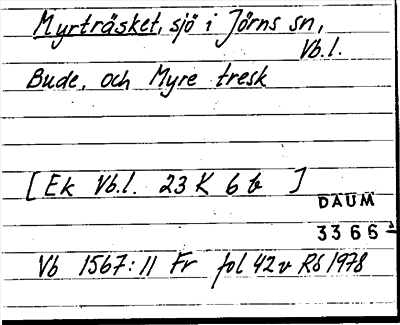 Myrträsket, sjö i Jörns sn,
Vb.l.
Bude, och Myre tresk
[Ek Vb.l. 23 K 6 b ]
DAUM
3366
Vb 1567:11 Fr fol 42v RS 1978